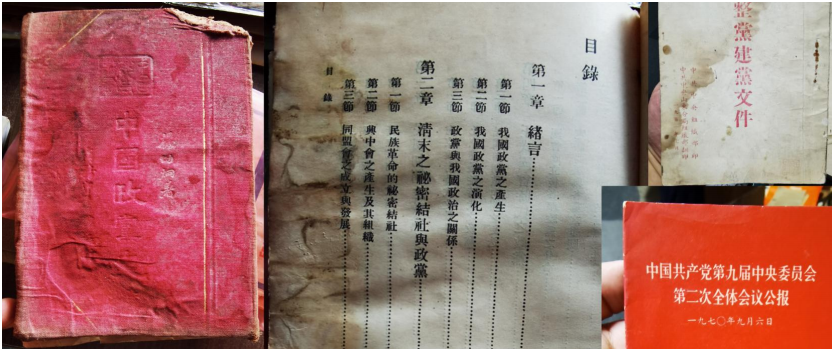 中國政
目錄
第一章 緒言
第一節 我國政黨之產生
第二節 我國政黨之演化
第三節 政黨與我國政治之關係
第二章 清末之祕密結社與政黨
第一節 民族革命的祕密結社
第二節 興中會之產生及其組織
第三節 同盟會之成立與發展
目錄
整黨建黨文件
中国共产党第九届中央委员会
第二次全体会议公报
一九七〇年九月六日